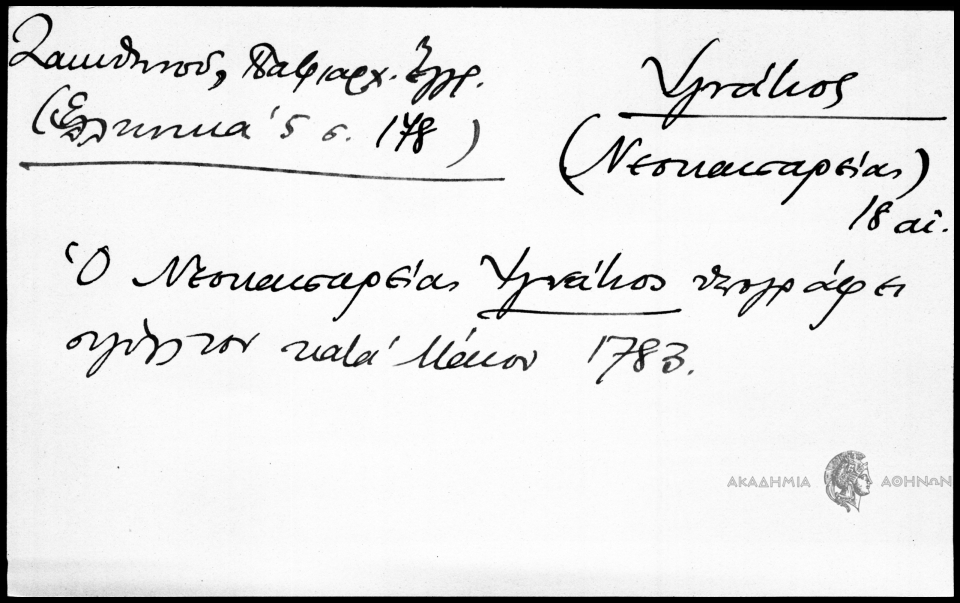 Ζακυθηνοῦ, Πατριαρχ. ἔγγρ.
(Ἑλληνικά 5 σ. 178)
Ἰγνάτιος
(Νεοκαισαρείας)
18 αἰ.
Ὁ Νεοκαισαρείας Ἰγνάτιος ὑπογράφει
σιγίλλιον κατά Μάιον 1783.
ΑΚΑΔΗΜΙΑ ΑΘΗΝΩΝ